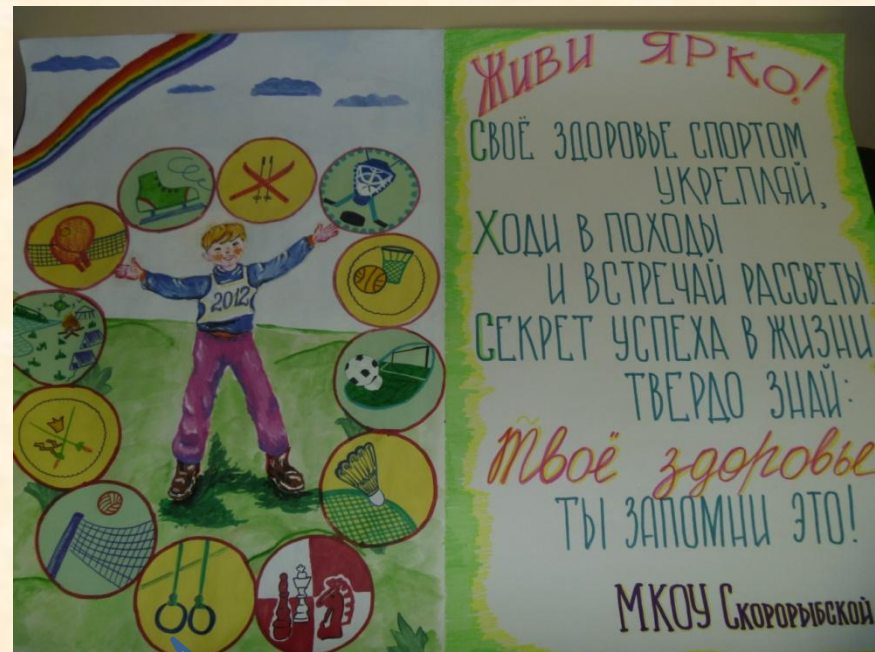 2012
Живи ярко!
Своё здоровье спортом
укрепляй,
Ходи в походы
и встречай рассветы.
Секрет успеха в жизни
твердо знай:
Твоё здоровье
ты запомни это!
МКОУ Скорорыбской